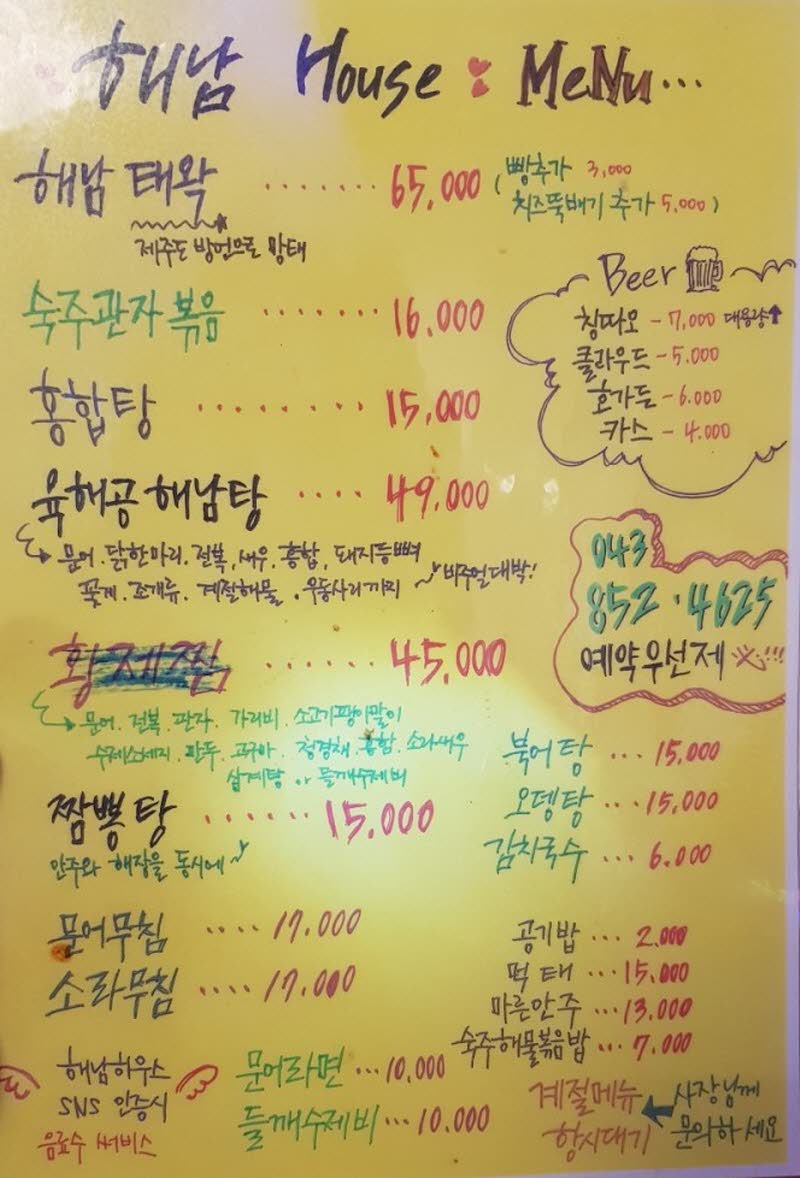 해남 House : MeNu...
해남 태왁 ....... 65,000 (빵추가 3,000
치즈뚝배기 추가 5,000)
제주도 방언으로 망태
숙주관자볶음 ....... 16,000
홍합탕 ........ 15,000
육해공 해남탕 .... 49,000
문어.닭한마리.전복,새우.홍합,돼지등뼈
꽃게.조개류.계절해물.우동사리까지 ~ 비주얼대박!
황제찜 ...... 45,000
문어.전복.관자.가리비.소고기팽이말이
수제소세지.만두.고구마.청경채.홍합.소라.새우
삼계탕 or 들깨수제비
짬뽕탕 ...... 15,000
안주와 해장을 동시에~
문어무침 .... 17,000
소라무침 .... 17,000
해남하우스
SNS 인증시
음료수 써비스
문어라면 ... 10,000
들깨수제비 ... 10,000
Beer
칭따오 - 7,000 대용량↑
클라우드 - 5,000
호가든 - 6,000
카스 - 4,000
043
852.4625
예약우선제!!!
북어탕 ... 15,000
오뎅탕 ... 15,000
김치국수 ... 6,000
공기밥 ... 2,000
먹태 ... 15,000
마른안주 ... 13,000
숙주해물볶음밥 ... 7,000
계절메뉴 ← 사장님께
항시대기 문의하세요